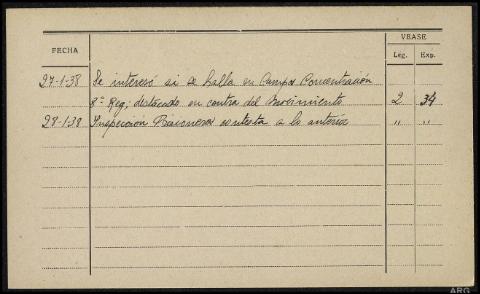 FECHA VEASE
Leg. Exp.
27-1-38 Se interesó si se halla en Campos Concentración
8ª Reg; destacado en contra del Movimiento 2 34
28-1-38 Inspeccion Prisioneros contesta a lo anterior " "
ARG